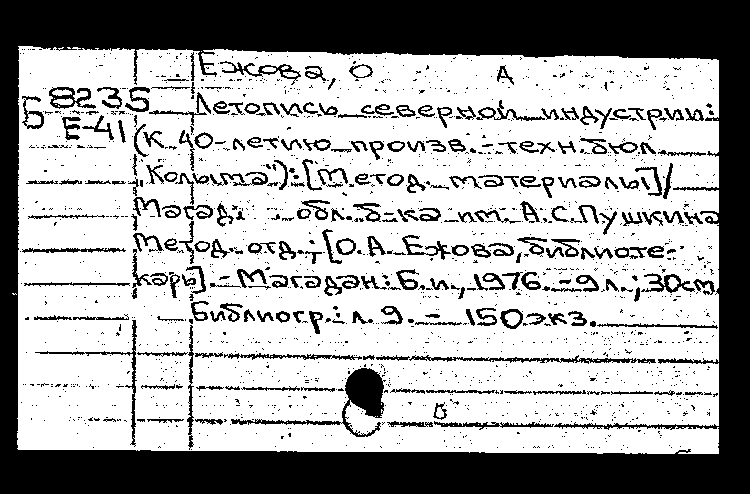 Ежова, О А
Б 8235 Летопись северной индустрии:
Е-41 (К 40-летию произв.-техн. бюл.
"Колыма"): [Метод. материалы] /
Магад. обл. б-ка им. А.С.Пушкина
Метод. отд.; [О.А. Ежова, библиоте-
карь]. - Магадан: Б.и., 1976. - 9 л.; 30см.
Библиогр.: л. 9. - 150 экз.